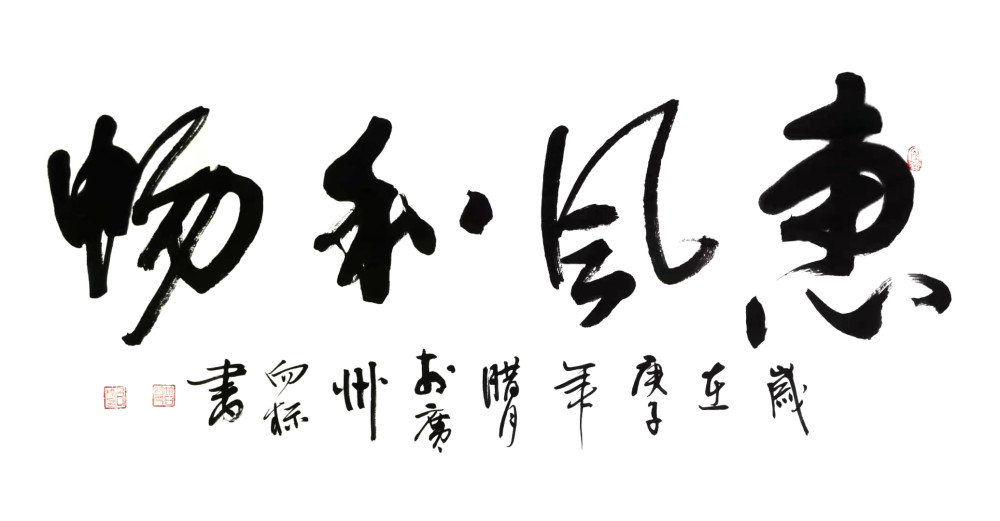 惠風和暢
歲在庚子年腊月於廣州向标書